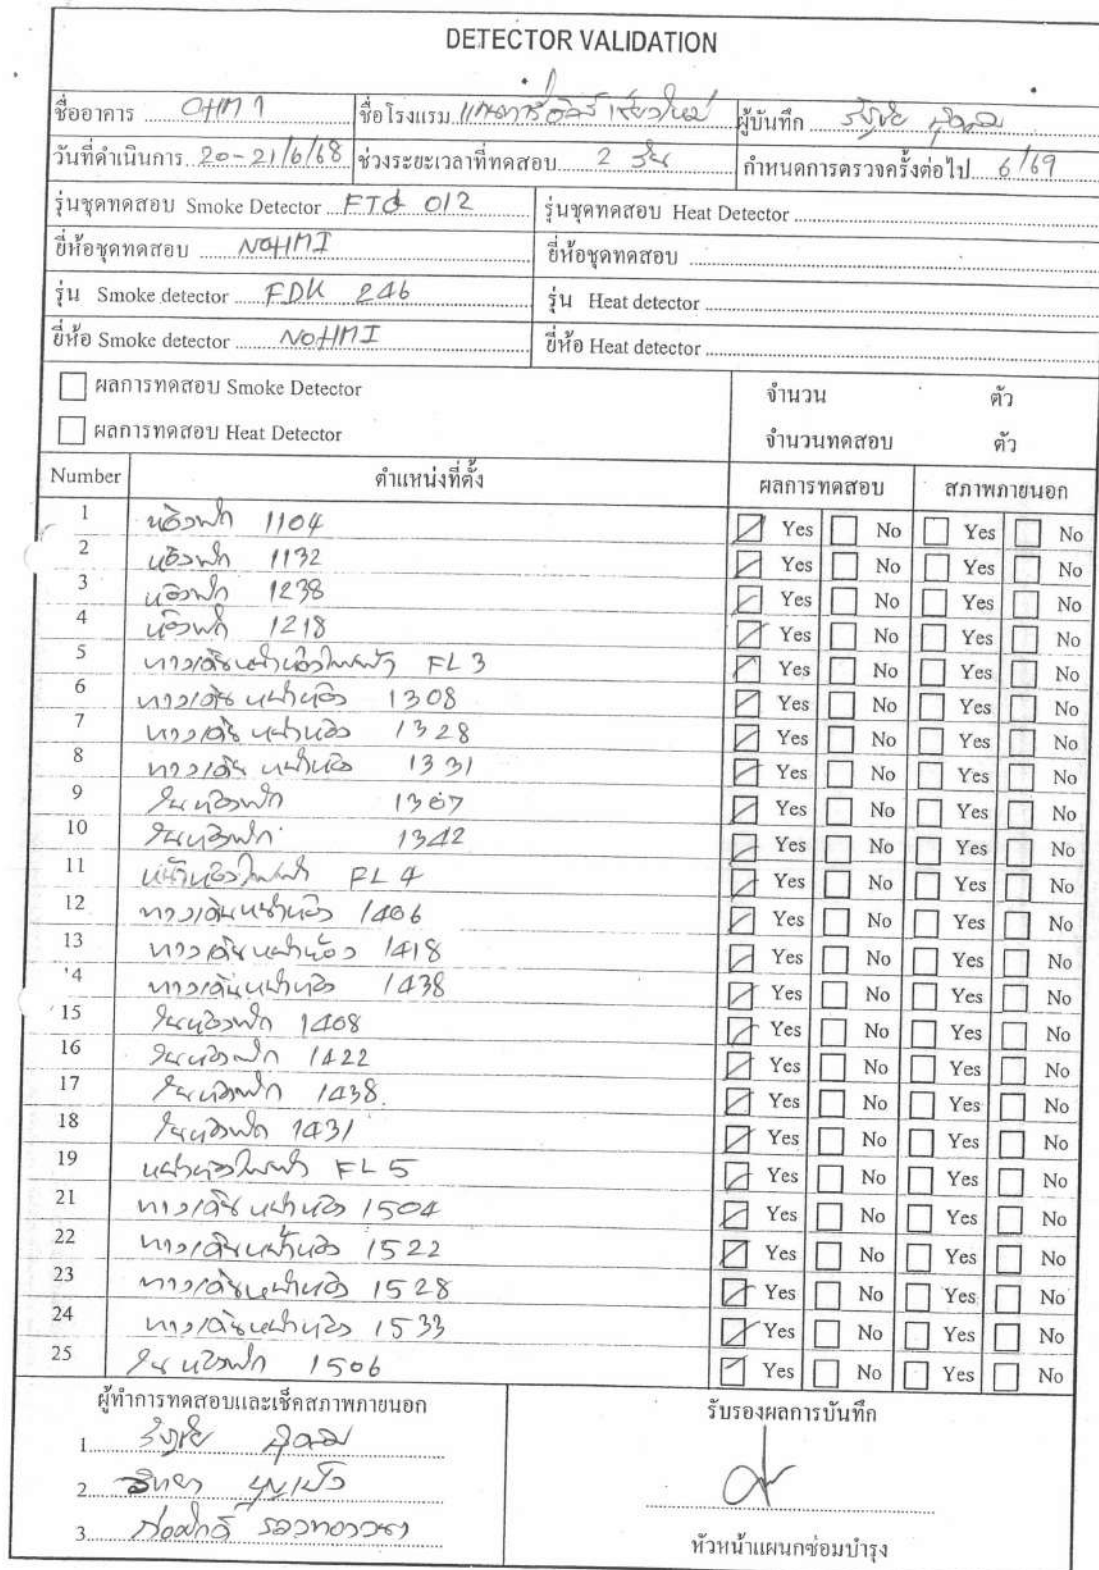 DETECTOR VALIDATION
ชื่ออาคาร OHM 1 ชื่อโรงแรม เชียงใหม่ ผู้บันทึก
วันที่ดำเนินการ 20-21/6/68 ช่วงระยะเวลาที่ทดสอบ 2 วัน กำหนดการตรวจครั้งต่อไป 6/69
รุ่นชุดทดสอบ Smoke Detector FTG 012 รุ่นชุดทดสอบ Heat Detector
ยี่ห้อชุดทดสอบ NOHMI ยี่ห้อชุดทดสอบ
รุ่น Smoke detector FDK 246 รุ่น Heat detector
ยี่ห้อ Smoke detector NOHMI ยี่ห้อ Heat detector
ผลการทดสอบ Smoke Detector จำนวน ตัว
ผลการทดสอบ Heat Detector จำนวนทดสอบ ตัว
Number ตำแหน่งที่ตั้ง ผลการทดสอบ สภาพภายนอก
1 ห้องพัก 1104 Yes No Yes No
2 ห้องพัก 1132 Yes No Yes No
3 ห้องพัก 1238 Yes No Yes No
4 ห้องพัก 1218 Yes No Yes No
5 ทางเดินหน้าห้องไฟฟ้า FL 3 Yes No Yes No
6 ทางเดินหน้าห้อง 1308 Yes No Yes No
7 ทางเดินหน้าห้อง 1328 Yes No Yes No
8 ทางเดินหน้าห้อง 1331 Yes No Yes No
9 ในห้องพัก 1307 Yes No Yes No
10 ในห้องพัก 1342 Yes No Yes No
11 หน้าห้องไฟฟ้า FL 4 Yes No Yes No
12 ทางเดินหน้าห้อง 1406 Yes No Yes No
13 ทางเดินหน้าห้อง 1418 Yes No Yes No
14 ทางเดินหน้าห้อง 1438 Yes No Yes No
15 ในห้องพัก 1408 Yes No Yes No
16 ในห้องพัก 1422 Yes No Yes No
17 ในห้องพัก 1438 Yes No Yes No
18 ในห้องพัก 1431 Yes No Yes No
19 หน้าห้องไฟฟ้า FL 5 Yes No Yes No
21 ทางเดินหน้าห้อง 1504 Yes No Yes No
22 ทางเดินหน้าห้อง 1522 Yes No Yes No
23 ทางเดินหน้าห้อง 1528 Yes No Yes No
24 ทางเดินหน้าห้อง 1533 Yes No Yes No
25 ในห้องพัก 1506 Yes No Yes No
ผู้ทำการทดสอบและเช็คสภาพภายนอก รับรองผลการบันทึก
1
2
3
หัวหน้าแผนกซ่อมบำรุง